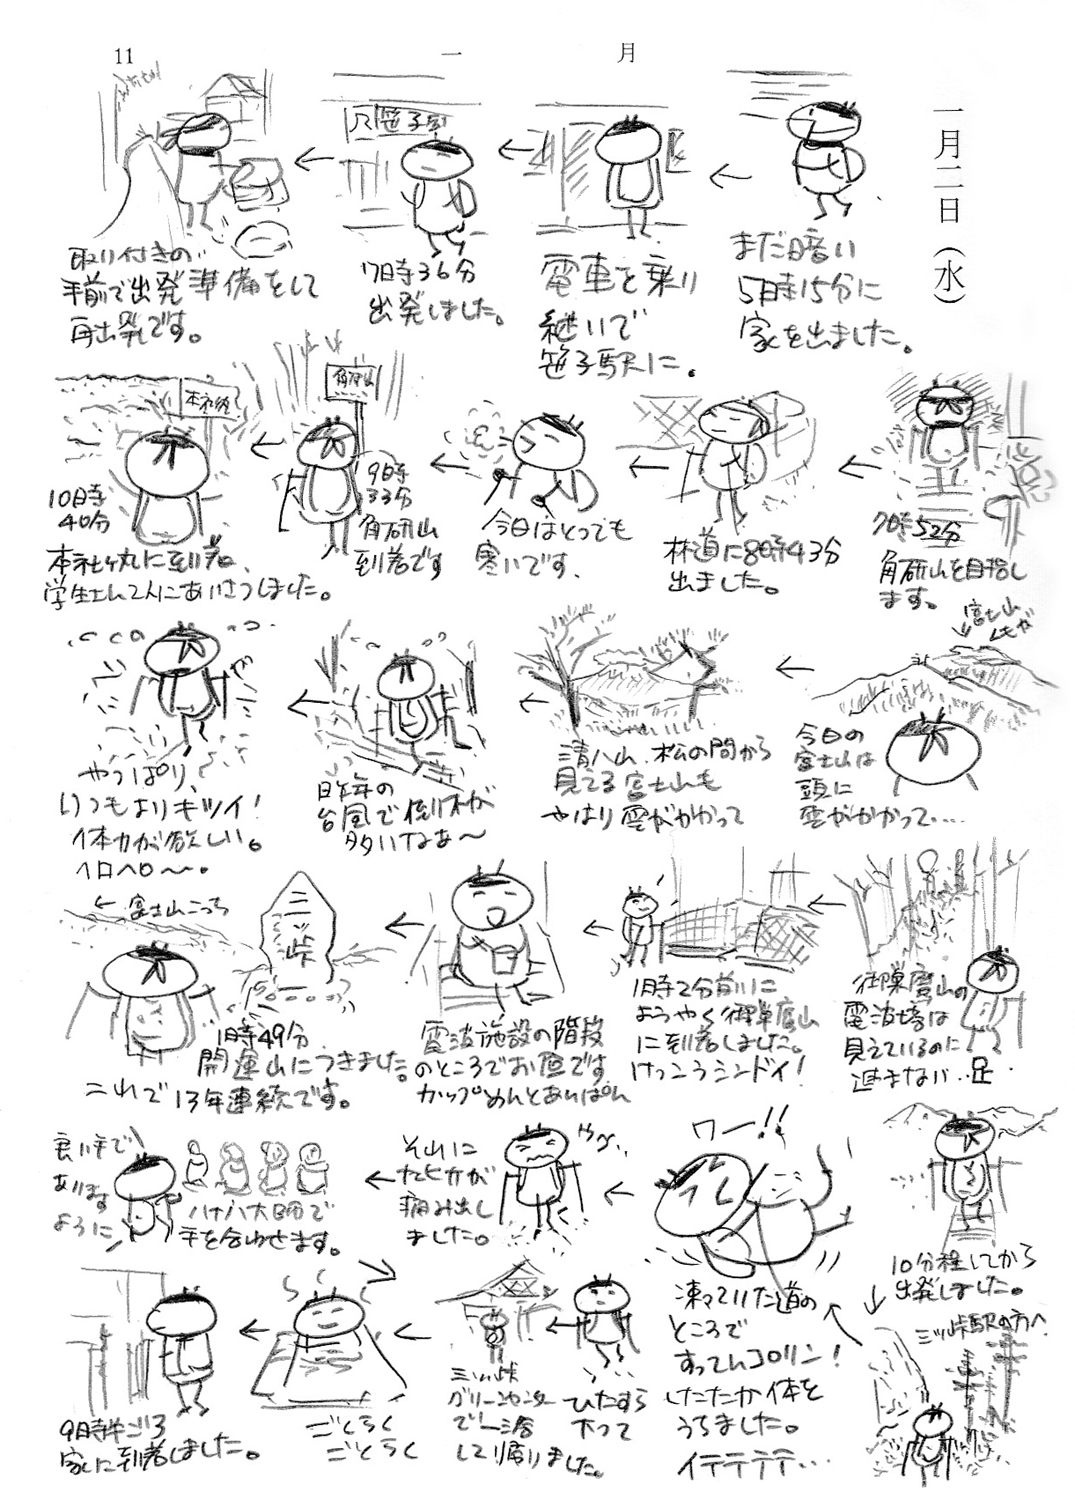 11
一
月
一月二日（水）
まだ暗い
5時15分に
家を出ました。
電車を乗り
継いで
笹子駅に。
笹子
7時36分
出発しました。
取り付きの
手前で出発準備をして
再出発です。
7時52分
角研山を目指し
ます。
林道に8時43分
出ました。
今日はとっても
寒いです、
角研山
9時
33分
角研山
到着です
本社ケ丸
10時
40分
本社ケ丸に到着、
学生さん2人にあいさつしました。
富士山
今日の
富士山は
頭に
雲がかかって・・・
清八山、松の間から
見える富士山も
やはり雲がかかって
昨年の
台風で倒木が
多いなあ〜
やっぱり、
いつもよりキツイ！
体力が欲しい。
ヘロヘロ〜。
御巣鷹山の
電波塔は
見えているのに
進まない・・足
1時2分前に
ようやく御巣鷹山
に到着しました。
けっこうシンドイ！
電波施設の階段
のところでお昼です
カップめんとあんぱん
←富士山こっち
三ッ峠
1時49分
開運山につきました。
これで13年連続です。
10分程してから
出発しました。
三ッ峠駅の方へ
ワー！！
凍っていた道の
ところで
すってんコロリン！
したたか体を
うちました。
イテテテテ・・・
その上に
ヒザが
痛み出し
ました。
八十八大師で
手を合わせます。
良い年で
あります
ように
ひたすら
下って
三ッ峠
グリーンセンター
で一浴
して帰りました。
ごくらく
ごくらく
9時半ごろ
家に到着しました。